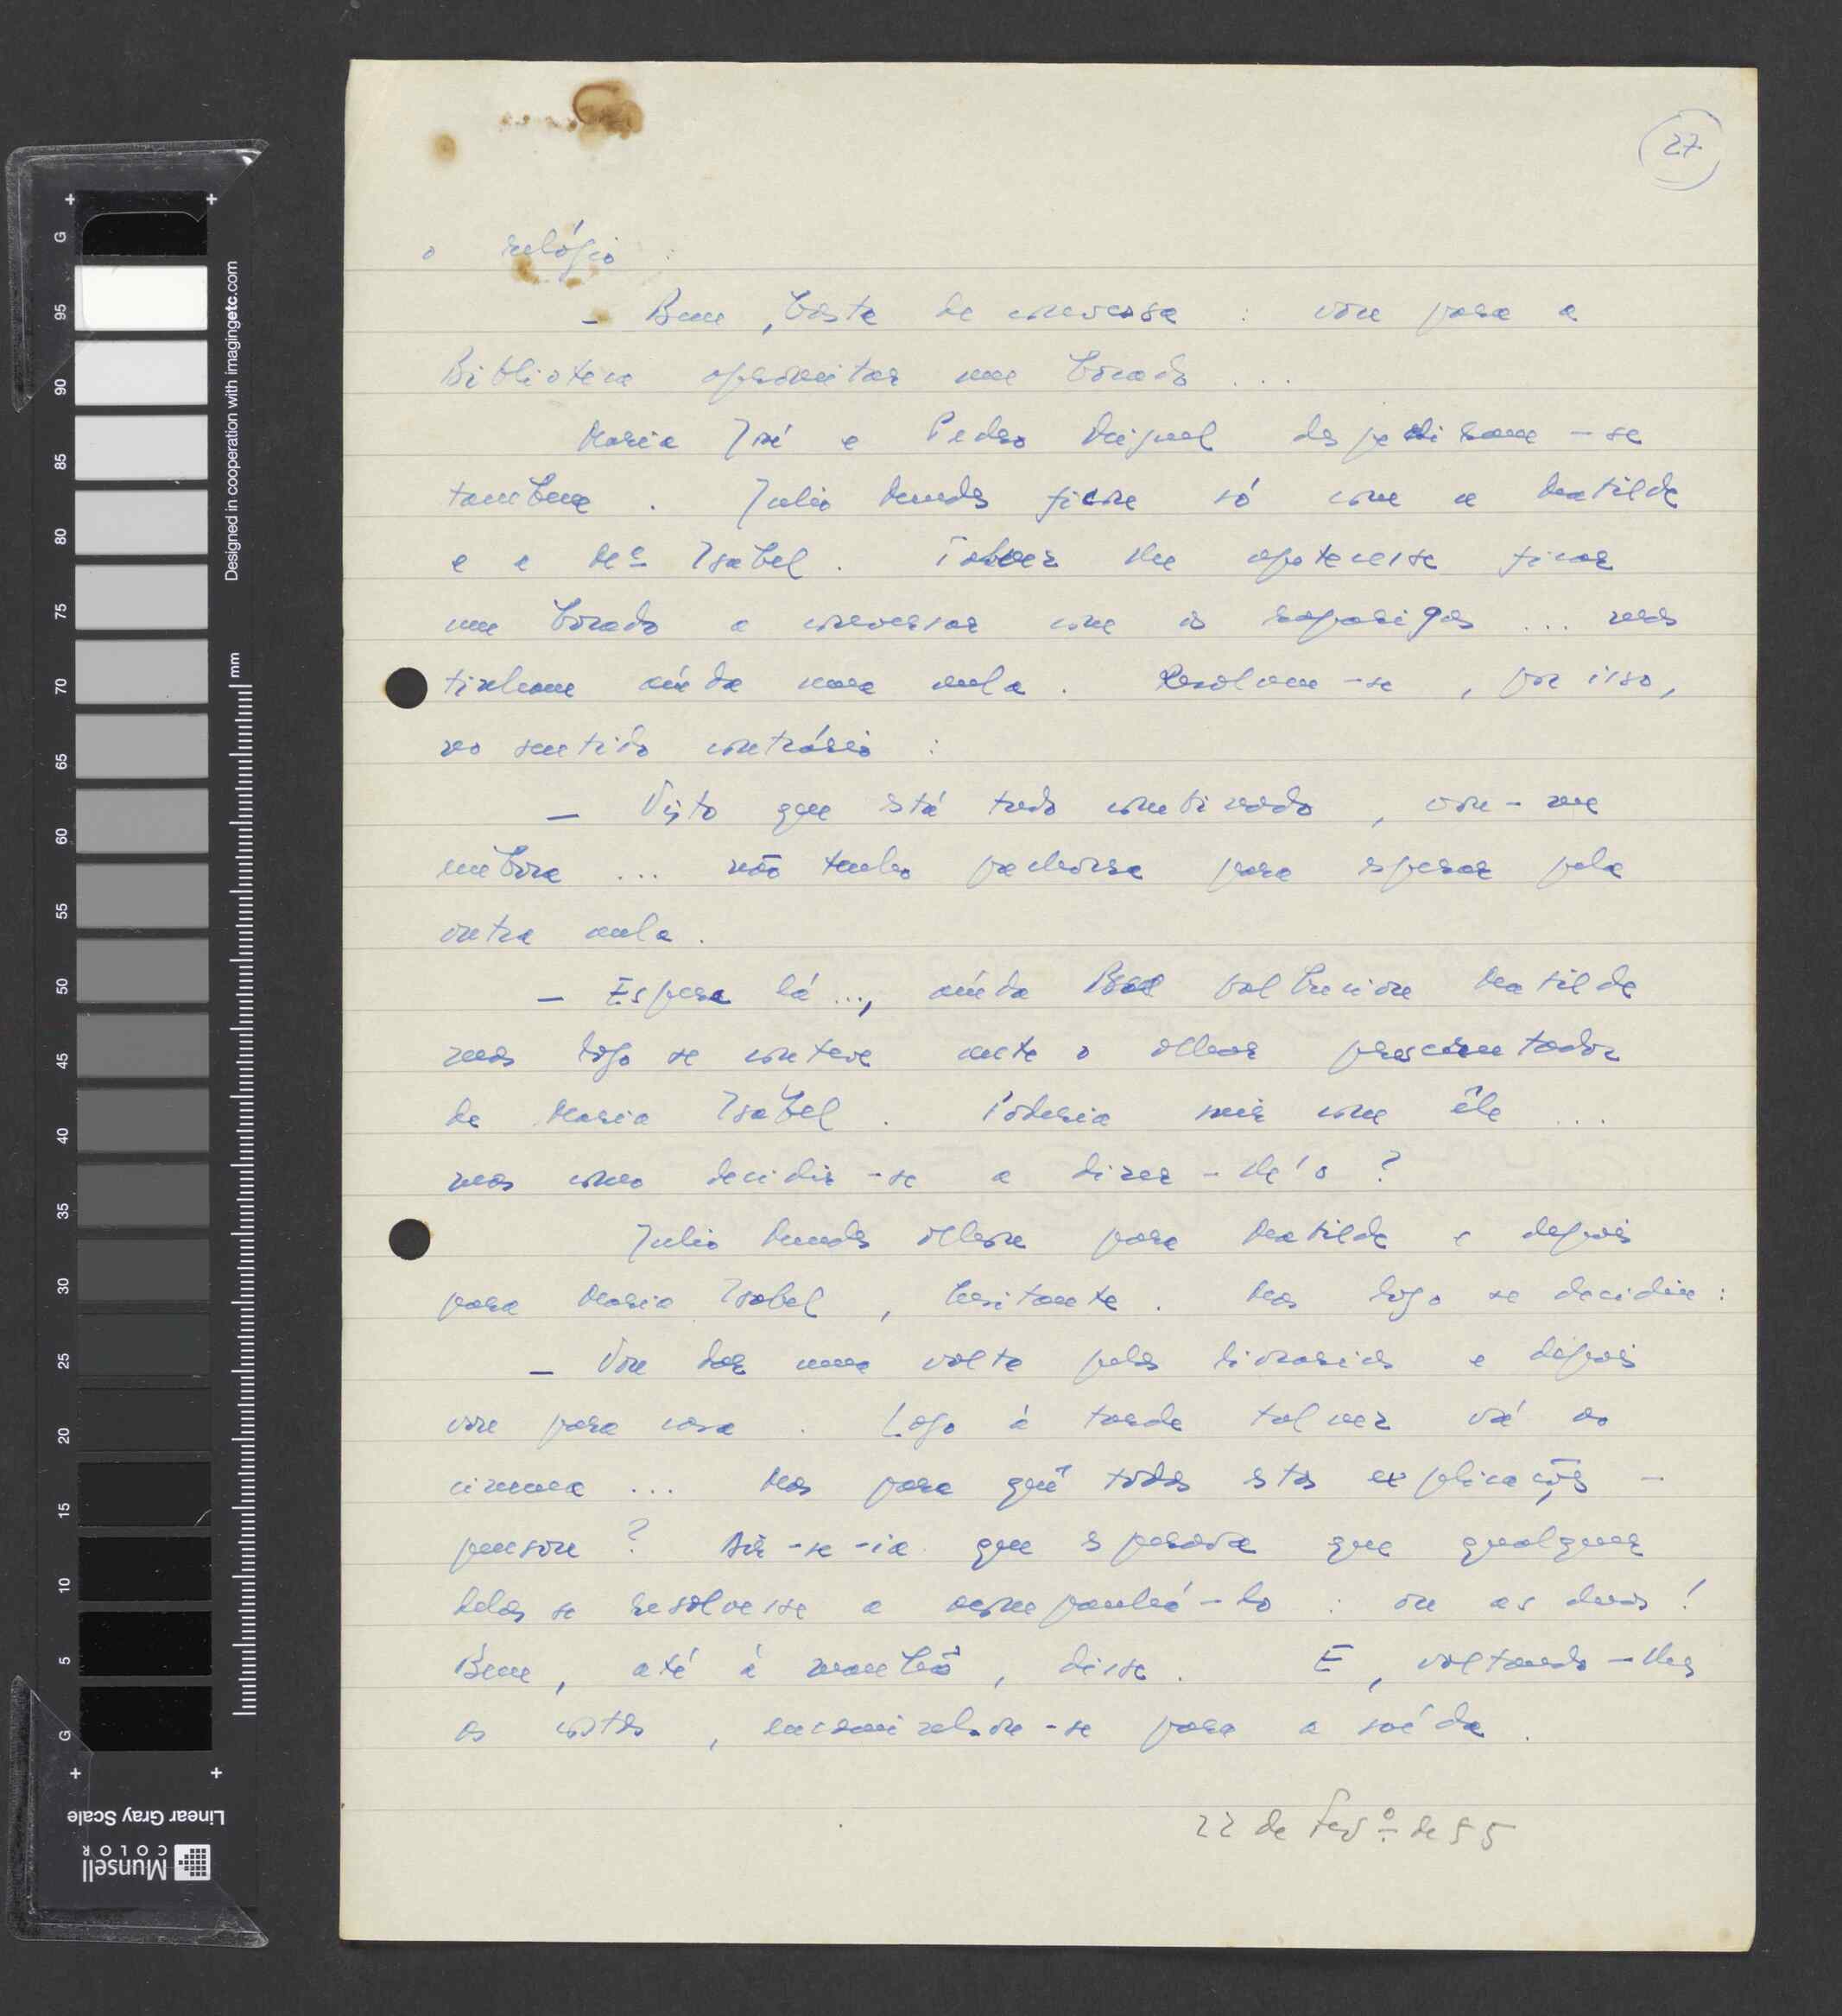 27
o relógio :
— Bem, basta de conversa : vou para a
Biblioteca aproveitar um bocado ...
Maria José e Pedro Miguel despediram-se
tambem . Julio Mendes ficou só com a Matilde
e a Mª Isabel . Talvez lhe apetecesse ficar
um bocado a conversar com as raparigas ... mas
tinham ainda uma aula . Resolveu-se , por isso,
no sentido contrário :
— Visto que está tudo combinado , vou-me
embora ... não tenho pachorra para esperar pela
outra aula .
— Espera lá ..., ainda balbuciou Matilde
mas logo se conteve ante o olhar prescrutador
de Maria Isabel . Poderia sair com êle ...
mas como decidir-se a dizer-lh'o ?
Julio Mendes olhou para Matilde e depois
para Maria Isabel , hesitante . Mas logo se decidiu :
— Vou dar uma volta pelas livrarias e depois
vou para casa . Logo à tarde talvez vá ao
cinema ... Mas para quê todas estas explicações –
pensou ? Dir-se-ia que esperava que qualquer
delas se resolvesse a acompanhá-lo : ou as duas !
Bem , até à manhã , disse . E , voltando-lhes
as costas , encaminhou-se para a saída .
22 de Fevº de 55
Designed in cooperation with imagingetc.com
mm
+ G 95 90 85 80 75 70 65 60 55 50 45 40 35 30 25 20 15 10 5 G +
Linear Gray Scale
Munsell
COLOR